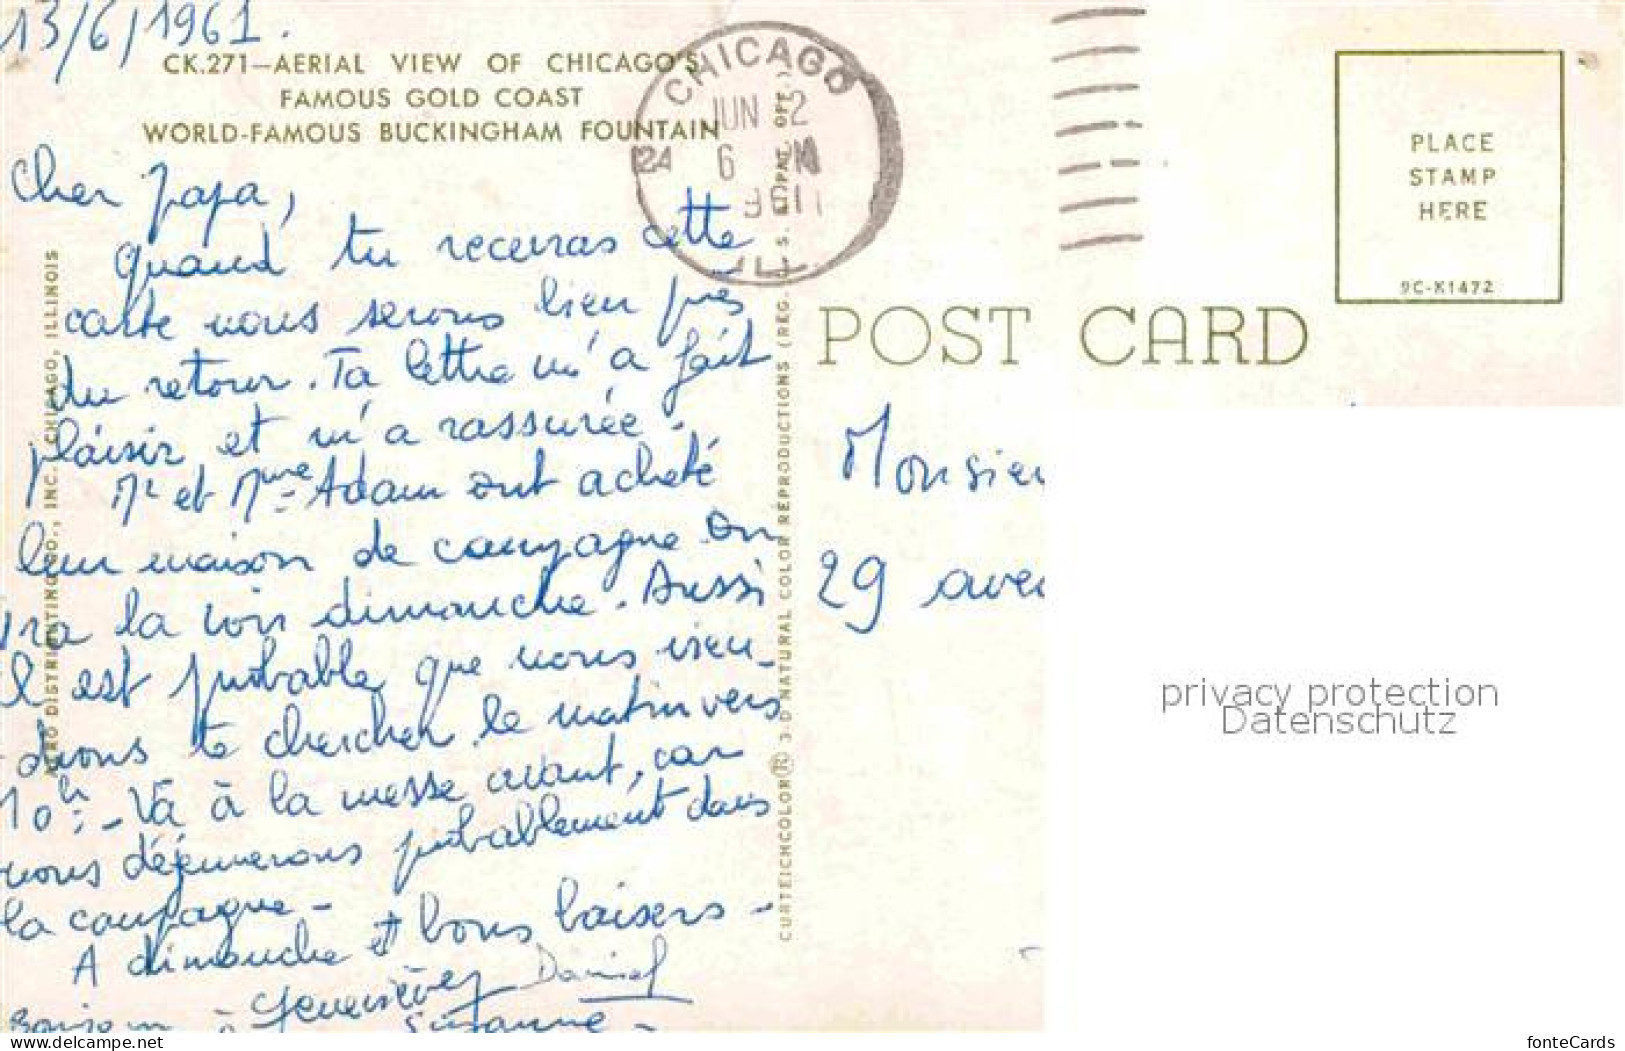 13/6/1961.
CK.271—AERIAL VIEW OF CHICAGO'S
FAMOUS GOLD COAST
WORLD-FAMOUS BUCKINGHAM FOUNTAIN
Cher papa,
quand tu recevras cette
carte nous serons bien près
du retour. Ta lettre m'a fait
plaisir et m'a rassurée.
Mr et Mme Adam ont acheté
leur maison de campagne on
ira la voir dimanche. Aussi
il est probable que nous vien-
drons te chercher le matin vers
10h. - Va à la messe avant, car
nous déjeunerons probablement dans
la campagne -
A dimanche et bons baisers -
Geneviève Daniel
Bonjour à Suzanne -
AERO DISTRIBUTING CO., INC. CHICAGO, ILLINOIS
CURTEICHCOLOR® 3-D NATURAL COLOR REPRODUCTIONS (REG. U. S. PAT. OFF.)
CHICAGO
JUN 12
6 M
1961
ILL.
PLACE
STAMP
HERE
9C-K1472
POST CARD
Monsieu
29 aven
privacy protection
Datenschutz
www.delcampe.net
fonteCards